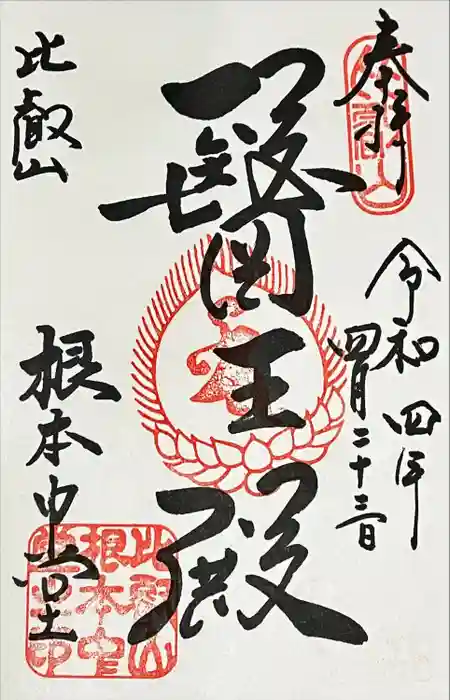 奉拝
比叡山
令和四年
四月二十三日
醫王殿
比叡山
根本中堂
比叡山
根本中
堂之印